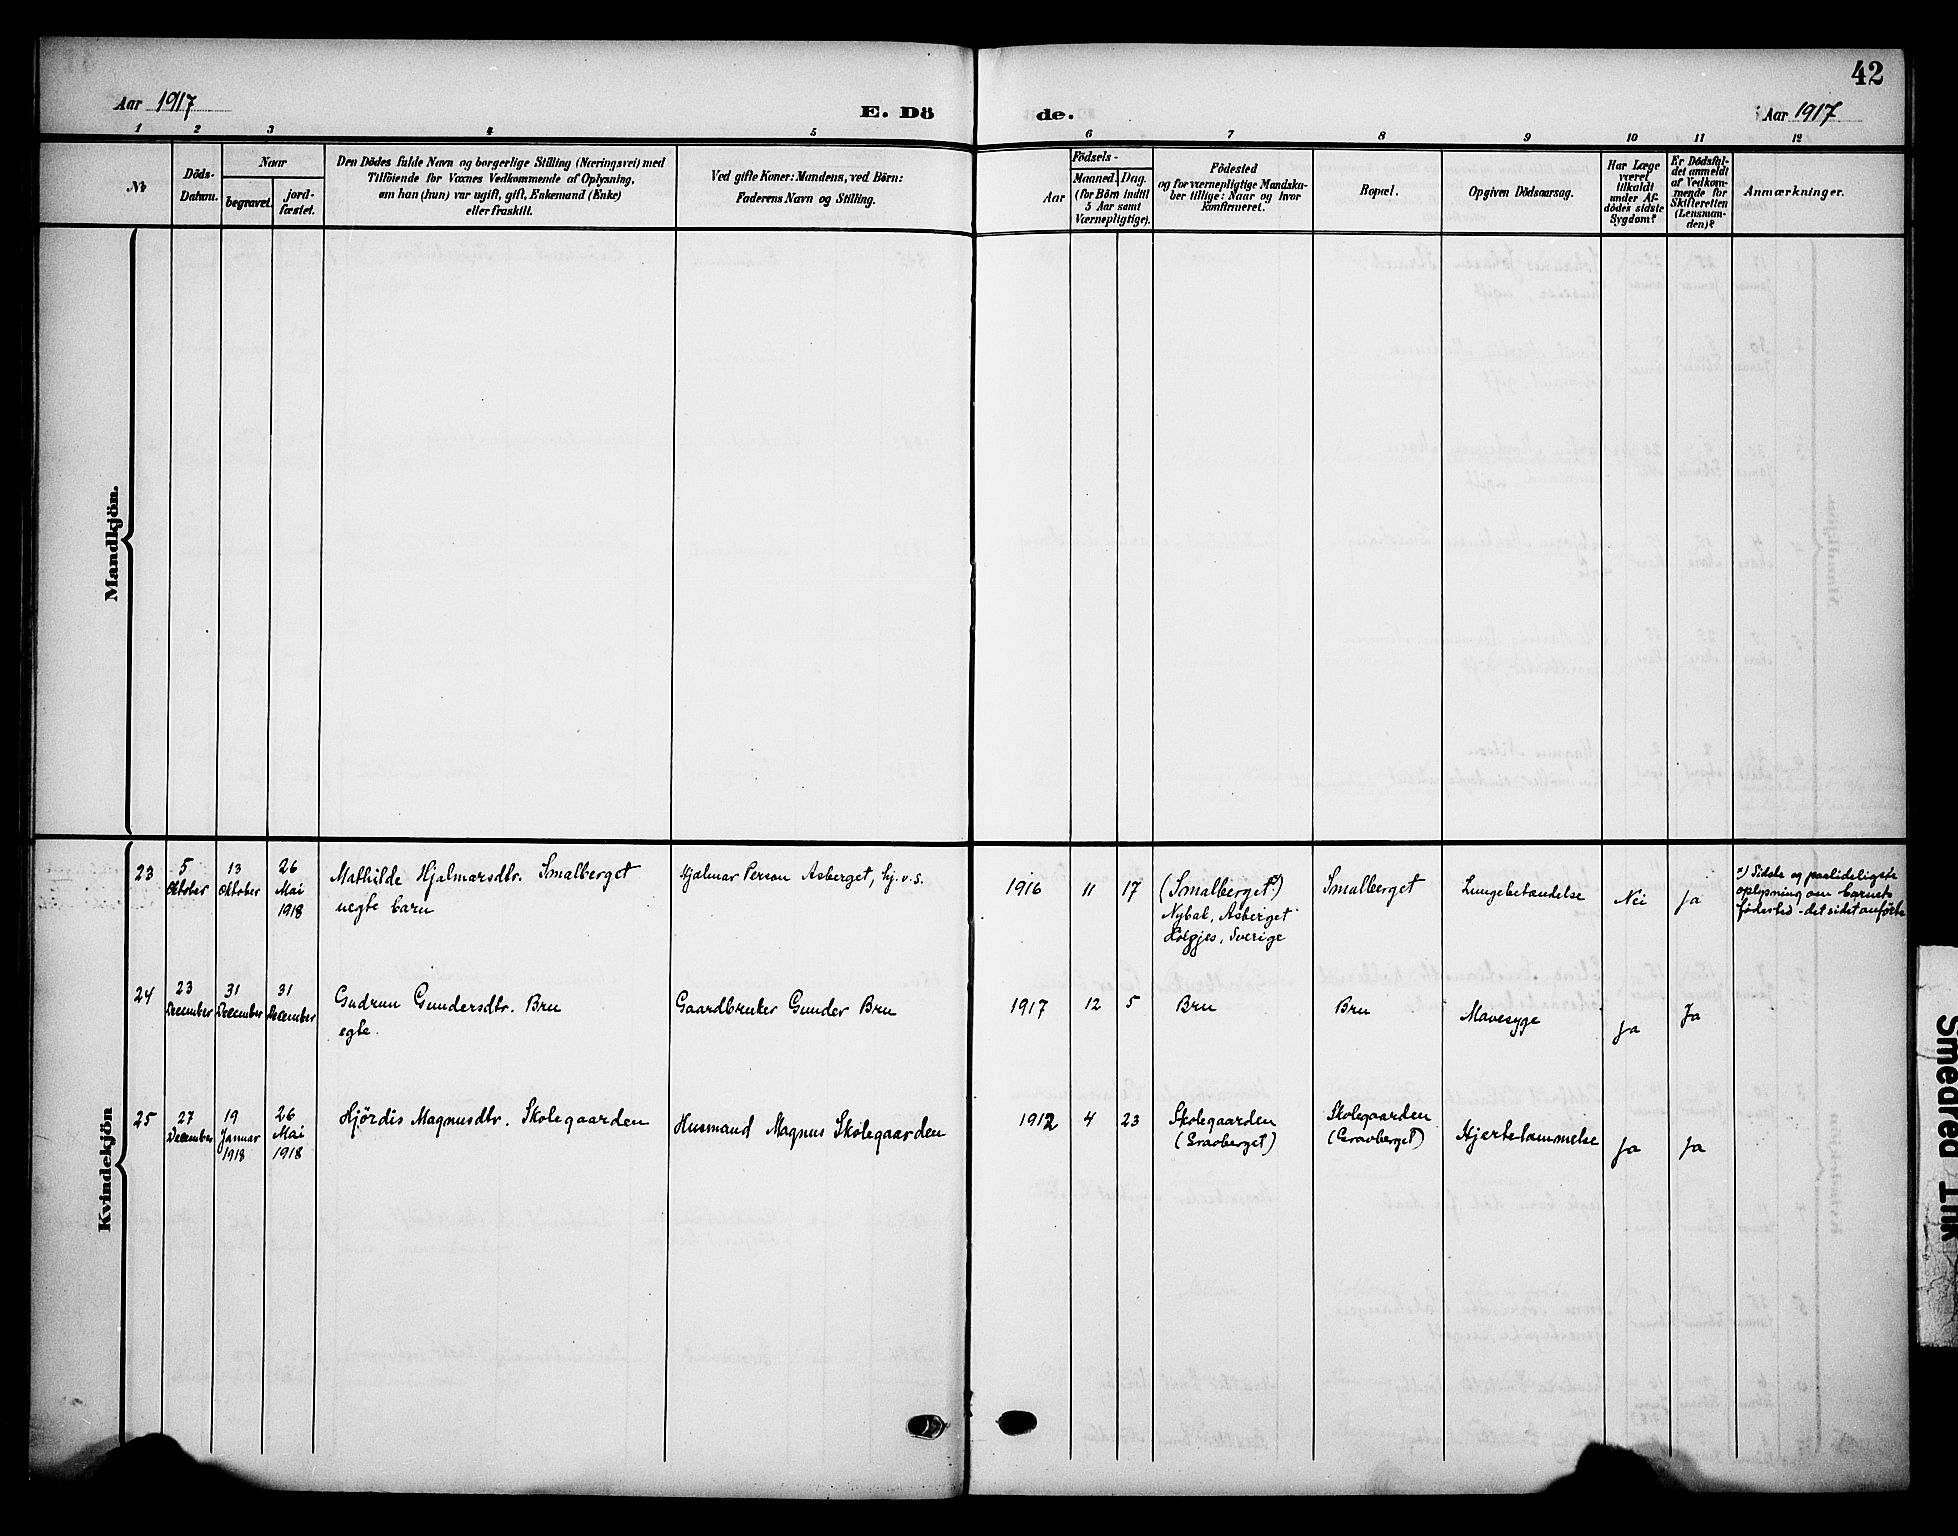 42
Aar 1917
E. Dö
de.
Aar 1917
1 2 3 4 5 6 7 8 9 10 11 12
№
Döds-
Datum.
Naar
begravet.
jord-
fæstet.
Den Dödes fulde Navn og borgerlige Stilling (Næringsvei) med
Tilföiende for Voxnes Vedkommende af Oplysning,
om han (hun) var ugift, gift, Enkemand (Enke)
eller fraskilt.
Ved gifte Koner: Mandens, ved Börn:
Faderens Navn og Stilling.
Födsels-
Aar
Maaned. Dag.
(for Börn indtil
5 Aar samt
Værnepligtige).
Födested
og for værnepligtige Mandska-
ber tillige: Naar og hvor
konfirmeret.
Bopæl.
Opgiven Dödsaarsag.
Har Læge
været
tilkaldt
under Af-
dödes sidste
Sygdom?
Er Dödsfal-
det anmeldt
af Vedkom-
mende for
Skifteretten
(Lensman-
den)?
Anmærkninger.
Mandkjön.
Kvindekjön
23
5
Oktober
13
Oktober
26
Mai
1918
Mathilde Hjalmarsdtr. Smalberget
uegte barn
Hjalmar Person Asberget, hj.v.s.
1916
11
17
(Smalberget)
Nybal, Asberget
Holjes, Sverige
Smalberget
Lungebetændelse
Nei
Ja
Sidste og paalideligste
oplysning om barnets
fødested - det sidst anførte
24
23
December
31
December
31
December
Gudrun Gundersdtr. Bru
egte.
Gaardbruker Gunder Bru
1917
12
5
Bru
Bru
Mavesyge
Ja
Ja
25
27
December
19
Januar
1918
26
Mai
1918
Hjördis Magnusdtr. Skolegaarden
Husmand Magnus Skolegaarden
1912
4
23
Skolegaarden
(Gravberget)
Skolegaarden
(Gravberget)
Hjertelammelse
Ja
Ja
Smeared Ink